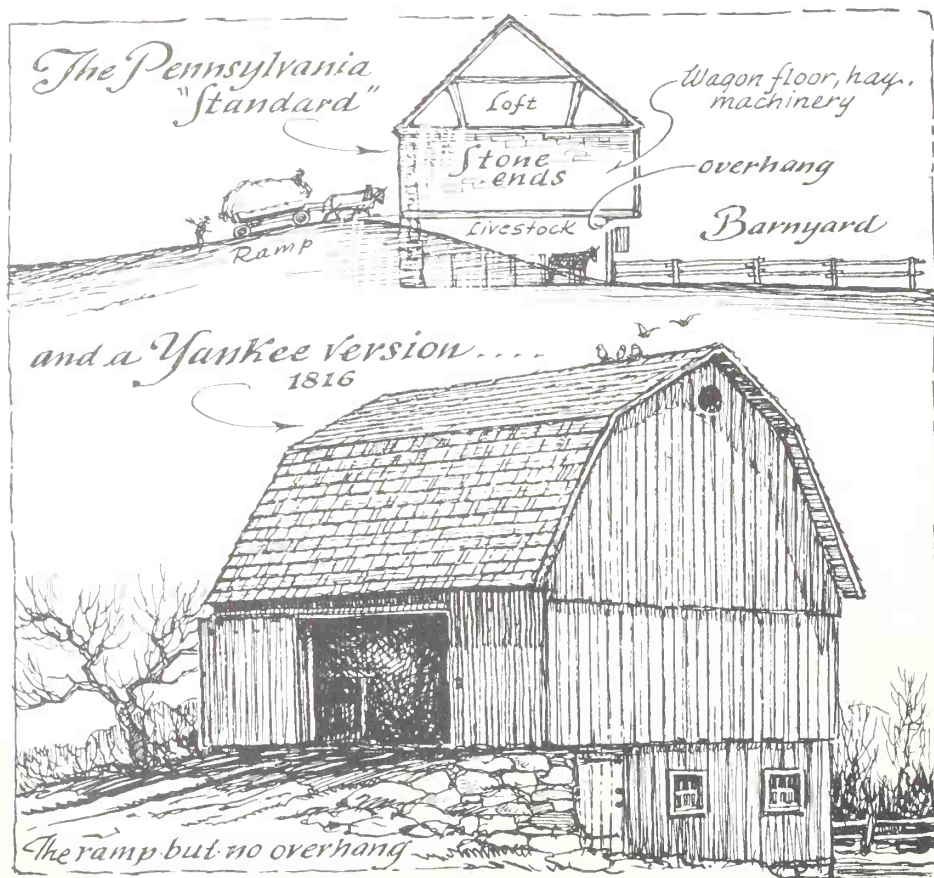 The Pennsylvania
"Standard"
Loft
Wagon floor, hay.
machinery
Stone
ends
overhang
Livestock
Barnyard
Ramp
and a Yankee version....
1816
The ramp but no overhang